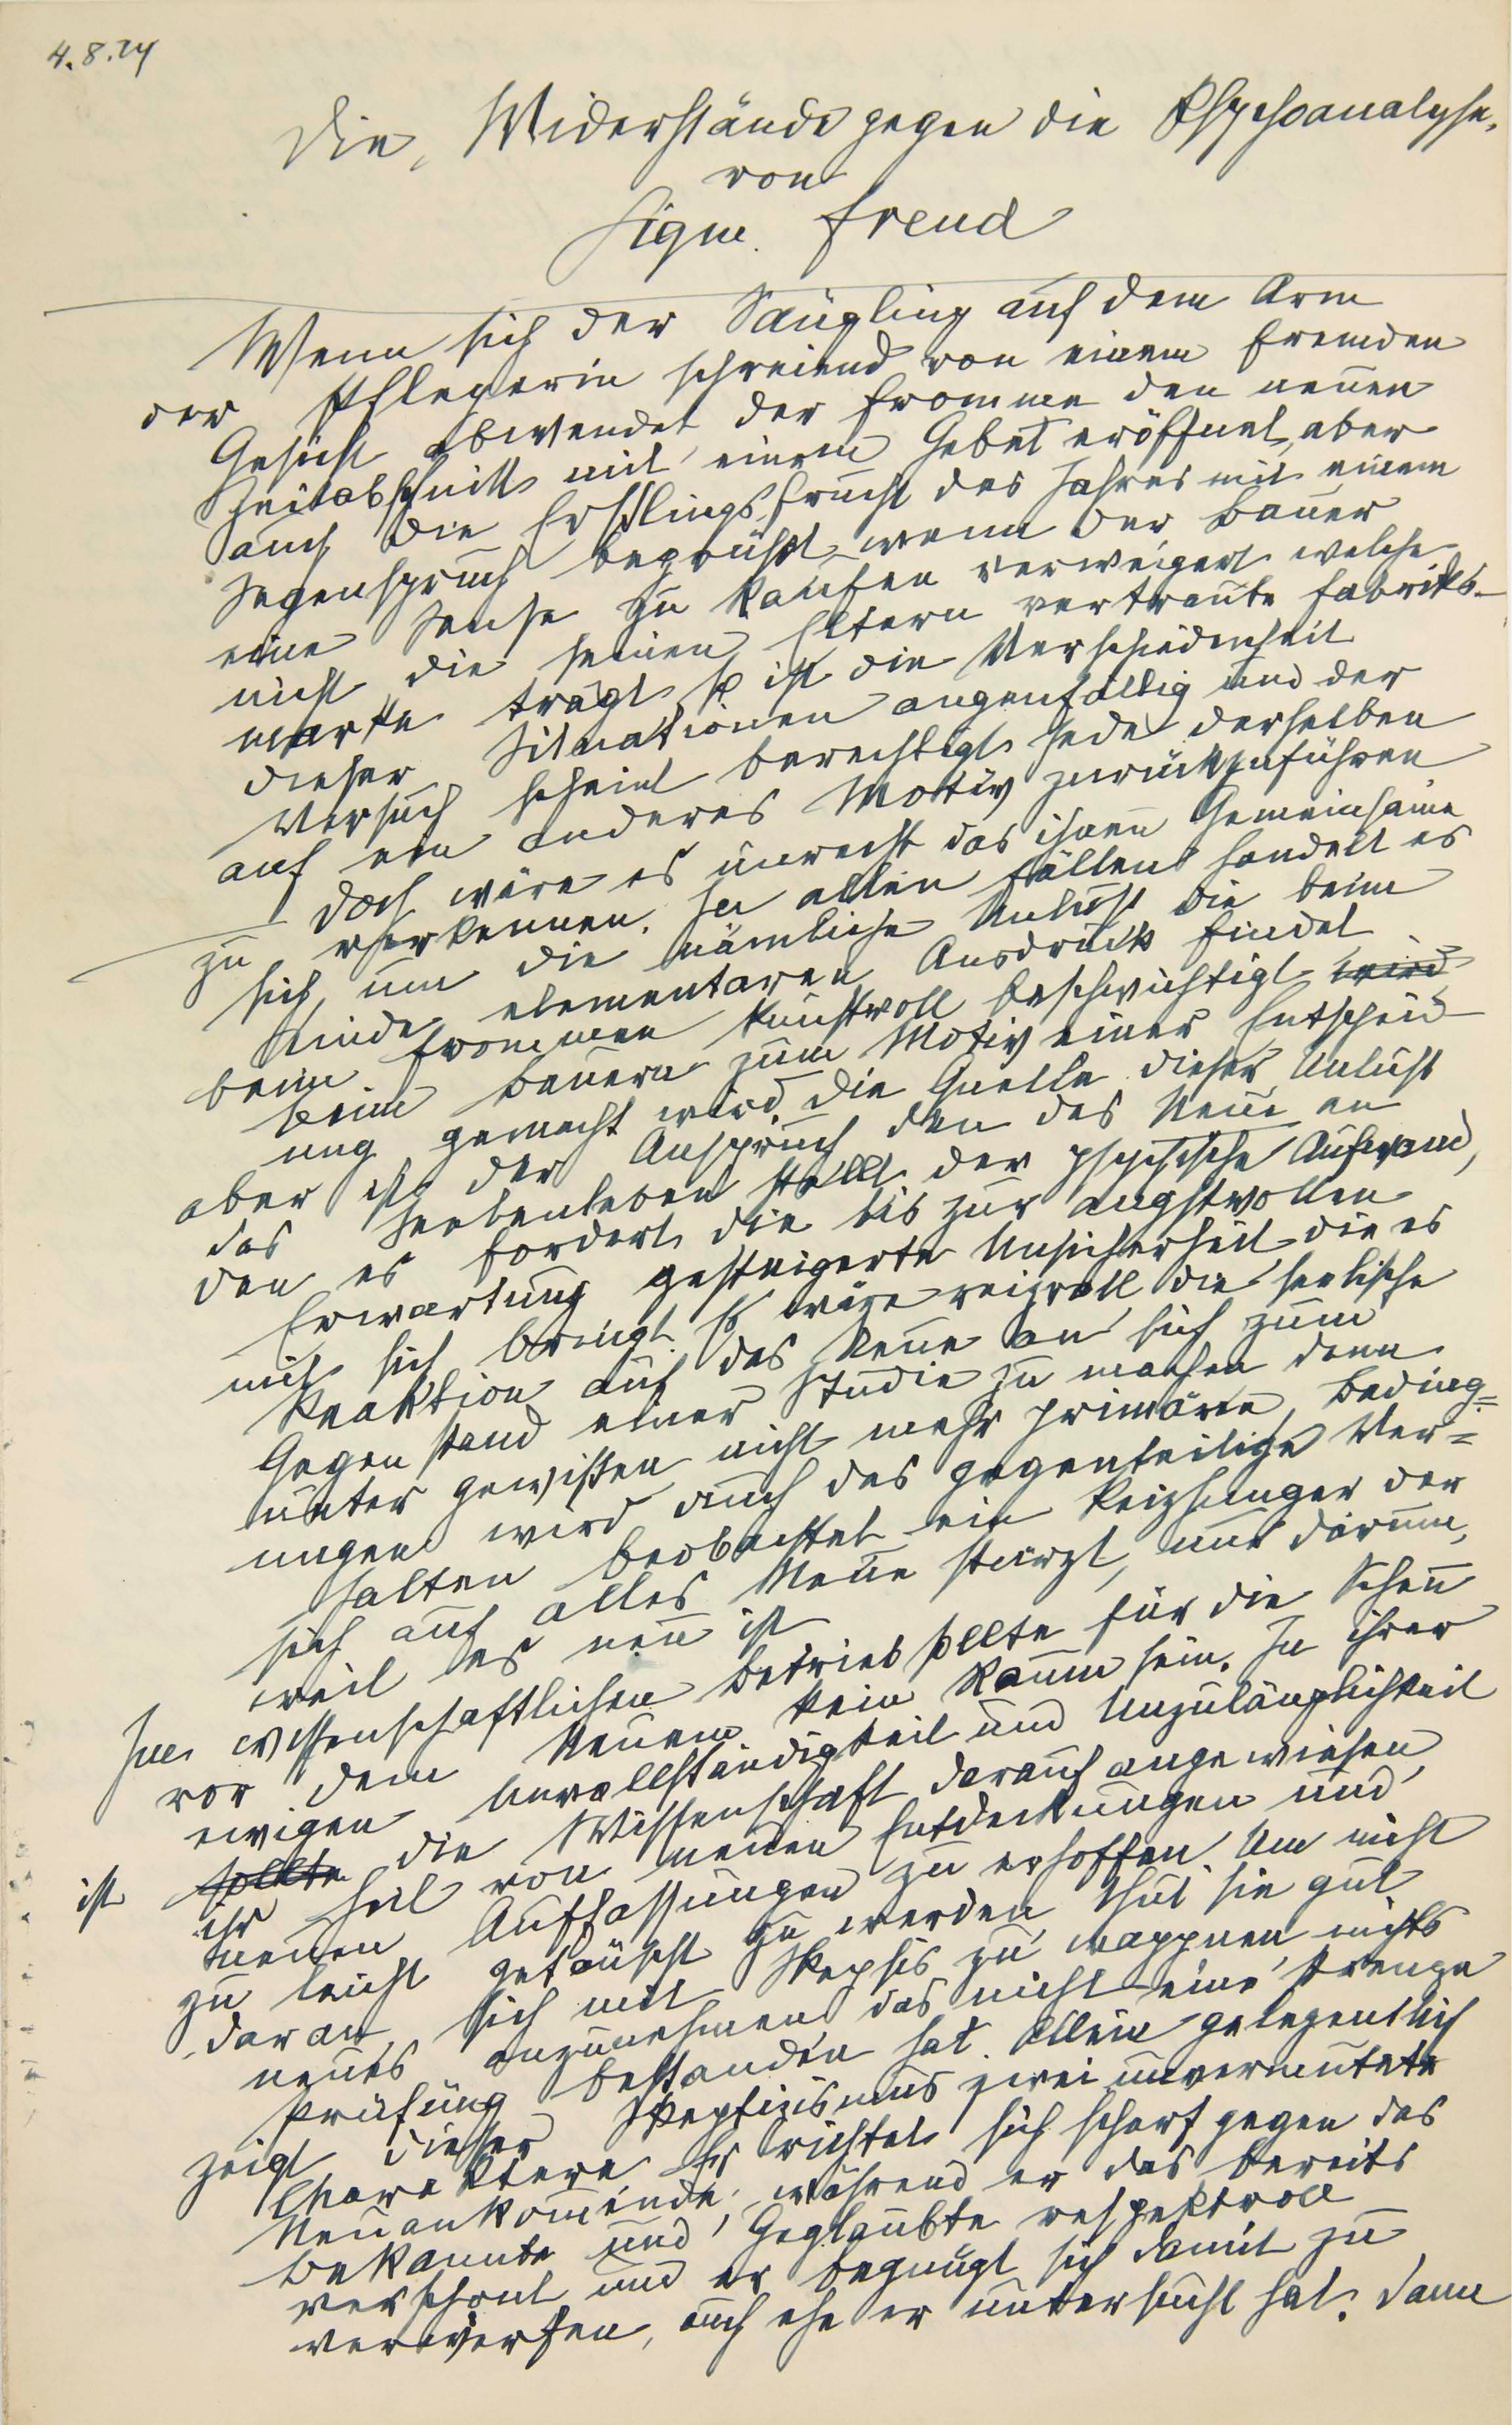 4.8.24
Die Widerstände gegen die Psychoanalyse.
von
Sigm. Freud
Wenn sich der Säugling auf dem Arm
der Pflegerin schreiend von einem fremden
Gesicht abwendet, der Fromme den neuen
Zeitabschnitt mit einem Gebet eröffnet, aber
auch die Erstlingsfrucht des Jahres mit einem
Segenspruch begrüßt, wenn der Bauer
eine Sense zu kaufen verweigert, welche
nicht die seinen Eltern vertraute Fabriks-
marke trägt, so ist die Verschiedenheit
dieser Situationen augenfällig und der
Versuch scheint berechtigt, jede derselben
auf ein anderes Motiv zurückzuführen.
Doch wäre es unrecht das ihnen Gemeinsame
zu verkennen. In allen Fällen handelt es
sich um die nämliche Unlust, die beim
Kinde elementaren Ausdruck findet,
beim Frommen kunstvoll beschwichtigt wird,
beim Bauern zum Motiv einer Entscheid-
ung gemacht wird. Die Quelle dieser Unlust
aber ist der Anspruch, den das Neue an
das Seelenleben stellt, der psychische Aufwand,
den es fordert, die bis zur angstvollen
Erwartung gesteigerte Unsicherheit, die es
mit sich bringt. Es wäre reizvoll, die seelische
Reaktion auf das Neue an sich zum
Gegenstand einer Studie zu machen, denn
unter gewissen, nicht mehr primären, Beding=
ungen wird auch das gegenteilige Ver=
halten beobachtet, ein Reizhunger, der
sich auf alles Neue stürzt, nur darum,
weil es neu ist.
Im wissenschaftlichen Betrieb sollte für die Scheu
vor dem Neuen kein Raum sein. In ihrer
ewigen Unvollständigkeit und Unzulänglichkeit
ist sollte die Wissenschaft darauf angewiesen,
ihr Heil von neuen Entdeckungen und
neuen Auffassungen zu erhoffen. Um nicht
zu leicht getäuscht zu werden, thut sie gut
daran, sich mit Skepsis zu wappnen, nichts
neues anzunehmen, das nicht eine strenge
Prüfung bestanden hat. Allein gelegentlich
zeigt dieser Skeptizismus zwei unvermutete
Charaktere. Er richtet sich scharf gegen das
Neuankom̄ende, während er das bereits
Bekannte und Geglaubte respektvoll
verschont, und er begnügt sich damit zu
verwerfen, auch ehe er untersucht hat. Dann